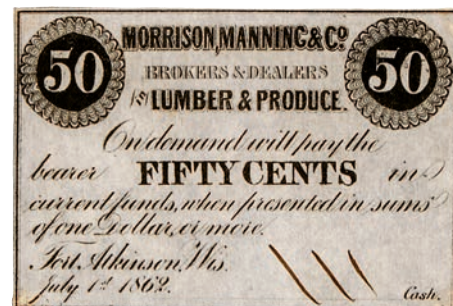 50 MORRISON, MANNING & Co 50
BROKERS & DEALERS
IN LUMBER & PRODUCE.
On demand will pay the
bearer FIFTY CENTS in
current funds, when presented in sums
of one Dollar, or more.
Fort Atkinson, Wis.
July 1st 1862.
Cash.